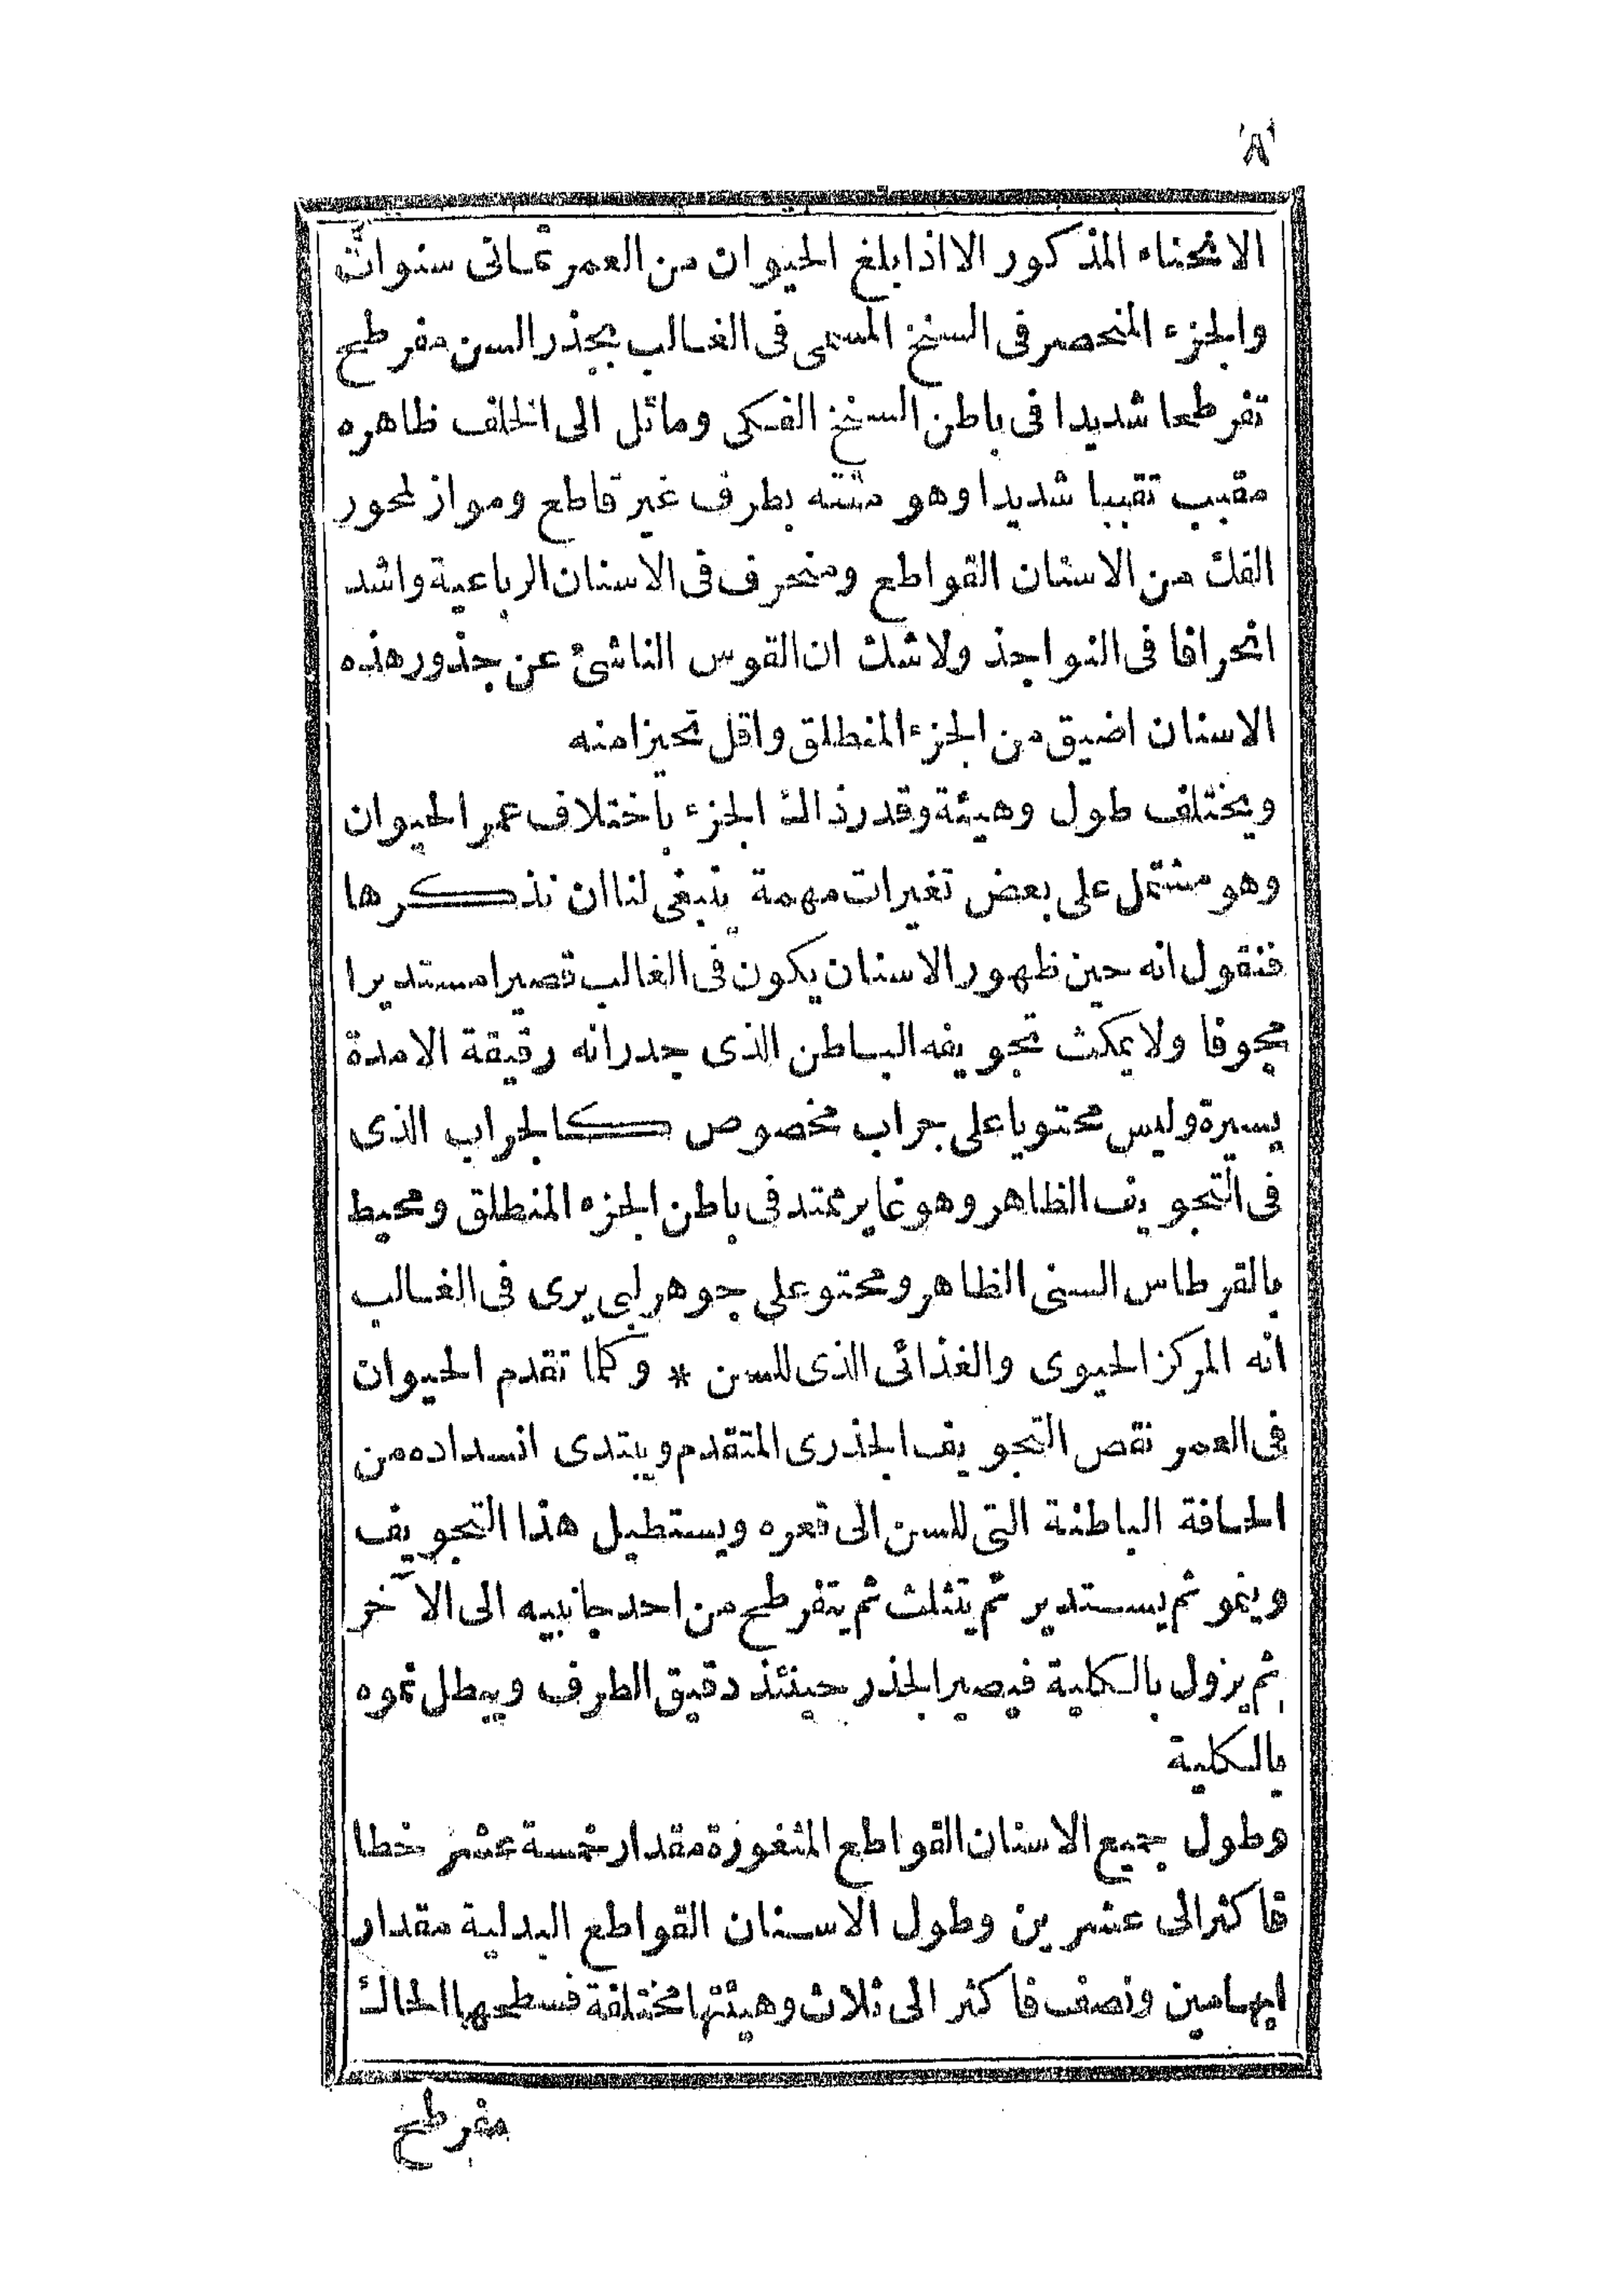 ٨
الانحناء المذكور الا اذا بلغ الحيوان من العمر ثمانى سنوات
والجزء المنحصر فى السنخ المسمى فى الغالب بجذر السن مفرطح
تفرطحا شديدا فى باطن السنخ الفكى ومائل الى الخلف ظاهره
مقبب تقببا شديدا وهو منته بطرف غير قاطع ومواز لمحور
الفك من الاسنان القواطع ومنحرف فى الاسنان الرباعية واشد
انحرافا فى النواجذ ولاشك ان القوس الناشئ عن جذور هذه
الاسنان اضيق من الجزء المنطلق واقل تحيزا منه
ويختلف طول وهيئة وقدر ذاك الجزء باختلاف عمر الحيوان
وهو مشتمل على بعض تغيرات مهمة ينبغى لنا ان نذكرها
فنقول انه حين ظهور الاسنان يكون فى الغالب قصيرا مستديرا
مجوفا ولا يمكث تجويفه الباطن الذى جدرانه رقيقة الا مدة
يسيرة وليس محتويا على جراب مخصوص كالجراب الذى
فى التجويف الظاهر وهو غاير ممتد فى باطن الجزء المنطلق ومحيط
بالقرطاس السنى الظاهر ومحتو على جوهر لبى يرى فى الغالب
انه المركز الحيوى والغذائى الذى للسن * وكلما تقدم الحيوان
فى العمر نقص التجويف الجذرى المتقدم ويبتدى انسداده من
الحافة الباطنة التى للسن الى قعره ويستطيل هذا التجويف
وينمو ثم يستدير ثم يتثلث ثم يتفرطح من احد جانبيه الى الآخر
ثم يزول بالكلية فيصير الجذر حينئذ دقيق الطرف ويبطل نموه
بالكلية
وطول جميع الاسنان القواطع المثغورة مقدار خمسة عشر خطا
فاكثر الى عشرين وطول الاسنان القواطع البدلية مقدار
ابهامين ونصف فاكثر الى ثلاث وهيئتها مختلفة فسطحها الحاك
مفرطح